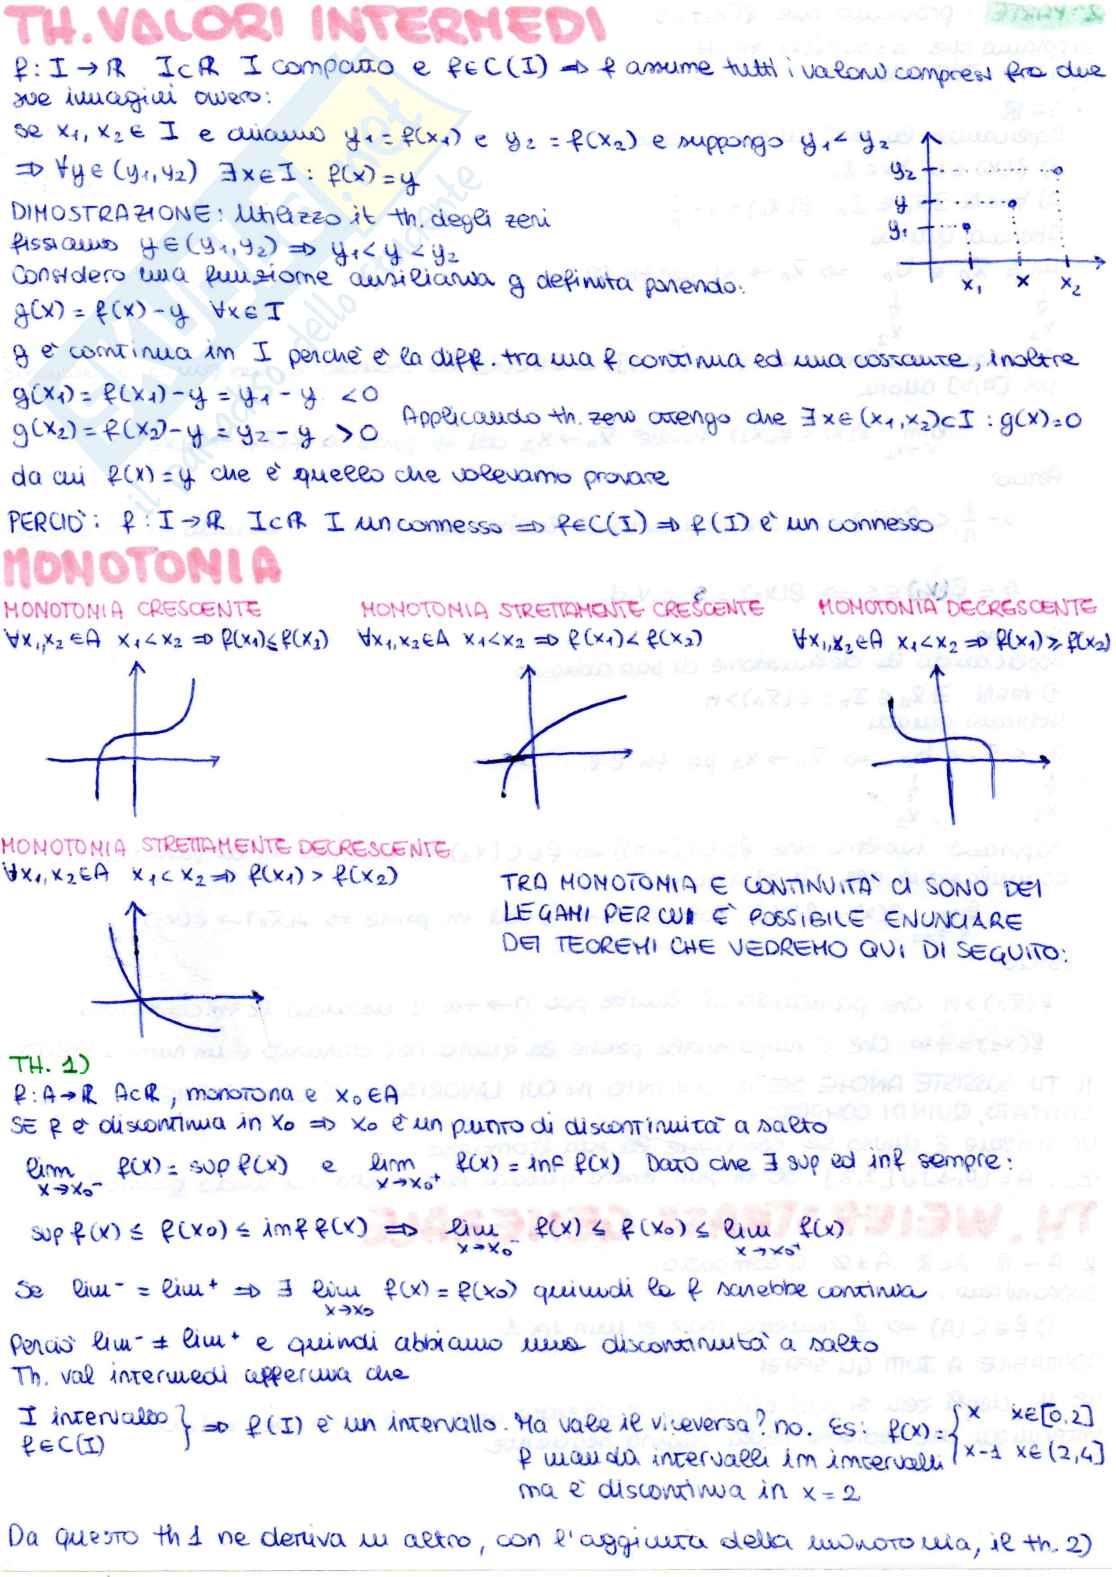 TH. VALORI INTERMEDI
f: I → ℝ I⊂ℝ I compatto e f∈C(I) ⇒ f assume tutti i valori compresi fra due
sue immagini ovvero:
se x₁, x₂ ∈ I e chiamo y₁ = f(x₁) e y₂ = f(x₂) e suppongo y₁ < y₂
⇒ ∀y∈(y₁,y₂) ∃x∈I : f(x)=y
y₂
y
y₁
x₁ x x₂
DIMOSTRAZIONE: Utilizzo il th. degli zeri
fissiamo y∈(y₁,y₂) ⇒ y₁<y<y₂
Considero una funzione ausiliaria g definita ponendo:
g(x) = f(x)-y ∀x∈I
g è continua in I perchè è la diff. tra una f continua ed una costante, inoltre
g(x₁) = f(x₁)-y = y₁-y <0
g(x₂) = f(x₂)-y = y₂-y >0 Applicando th. zeri ottengo che ∃x∈(x₁,x₂)⊂I : g(x)=0
da cui f(x)=y che è quello che volevamo provare
PERCIÒ: f: I→ℝ I⊂ℝ I un connesso ⇒ f∈C(I) ⇒ f(I) è un connesso
MONOTONIA
MONOTONIA CRESCENTE MONOTONIA STRETTAMENTE CRESCENTE MONOTONIA DECRESCENTE
∀x₁,x₂∈A x₁<x₂ ⇒ f(x₁)≤f(x₂) ∀x₁,x₂∈A x₁<x₂ ⇒ f(x₁)<f(x₂) ∀x₁,x₂∈A x₁<x₂ ⇒ f(x₁)≥f(x₂)
MONOTONIA STRETTAMENTE DECRESCENTE
∀x₁,x₂∈A x₁<x₂ ⇒ f(x₁) > f(x₂)
TRA MONOTONIA E CONTINUITÀ CI SONO DEI
LEGAMI PER CUI È POSSIBILE ENUNCIARE
DEI TEOREMI CHE VEDREMO QUI DI SEGUITO:
TH. 1)
f: A→ℝ A⊂ℝ, monotona e x₀∈A
SE f è discontinua in x₀ ⇒ x₀ è un punto di discontinuità a salto
lim x→x₀⁻ f(x) = sup f(x) e lim x→x₀⁺ f(x) = inf f(x) Dato che ∃ sup ed inf sempre:
sup f(x) ≤ f(x₀) ≤ inf f(x) ⇒ lim x→x₀⁻ f(x) ≤ f(x₀) ≤ lim x→x₀⁺ f(x)
Se lim⁻ = lim⁺ ⇒ ∃ lim x→x₀ f(x) = f(x₀) quindi la f sarebbe continua
Perciò lim⁻ ≠ lim⁺ e quindi abbiamo una discontinuità a salto
Th. val intermedi afferma che
I intervallo
f∈C(I) } ⇒ f(I) è un intervallo. Ma vale il viceversa? no. Es: f(x) = { x x∈[0,2]
x-1 x∈(2,4]
f manda intervalli in intervalli
ma è discontinua in x = 2
Da questo th 1 ne deriva un altro, con l'aggiunta della monotonia, il th. 2)